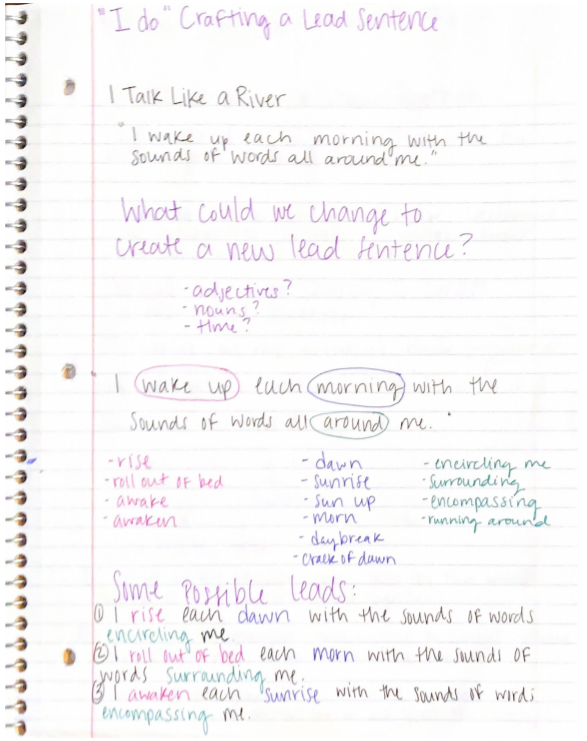 "I do" Crafting a Lead Sentence
I Talk Like a River
"I wake up each morning with the
sounds of words all around me."
What could we change to
create a new lead sentence?
- adjectives?
- nouns?
- time?
I wake up each morning with the
sounds of words all around me.
- rise
- roll out of bed
- awake
- awaken
- dawn
- sunrise
- sun up
- morn
- daybreak
- crack of dawn
- encircling me
- surrounding
- encompassing
- running around
Some Possible leads:
① I rise each dawn with the sounds of words
encircling me.
② I roll out of bed each morn with the sounds of
words surrounding me.
③ I awaken each sunrise with the sounds of words
encompassing me.